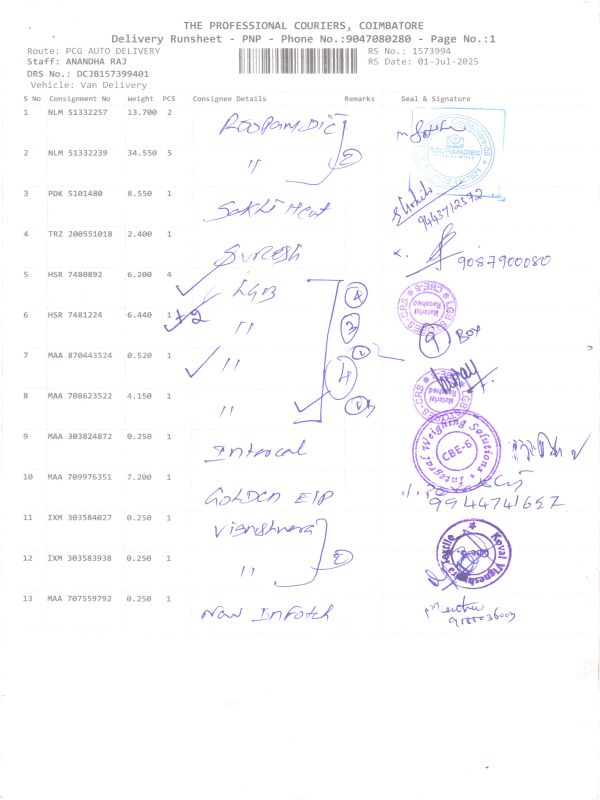 THE PROFESSIONAL COURIERS, COIMBATORE
Delivery Runsheet - PNP - Phone No.:9047080280 - Page No.:1
Route: PCG AUTO DELIVERY RS No.: 1573994
Staff: ANANDHA RAJ RS Date: 01-Jul-2025
DRS No.: DCJB157399401
Vehicle: Van Delivery
S No Consignment No Weight PCS Consignee Details Remarks Seal & Signature
1 NLM 51332257 13.700 2
2 NLM 51332239 34.550 5 " 2
3 PDK 5101480 8.550 1 Sakthi Heat 9443712572
4 TRZ 200551018 2.400 1 Suresh 9087900080
5 HSR 7480892 6.200 4 LGB 4
6 HSR 7481224 6.440 1+2 " 3 9 Box
7 MAA 870443524 0.520 1 "
8 MAA 708623522 4.150 1 "
9 MAA 303824872 0.250 1 Integral Weighing Solutions CBE-6
10 MAA 709976351 7.200 1 GOLDEN 9944741657
11 IXM 303584027 0.250 1 Vigneshwara
12 IXM 303583938 0.250 1 " 2 Kovai Vigneshwara Textile
13 MAA 707559792 0.250 1 New Infotch